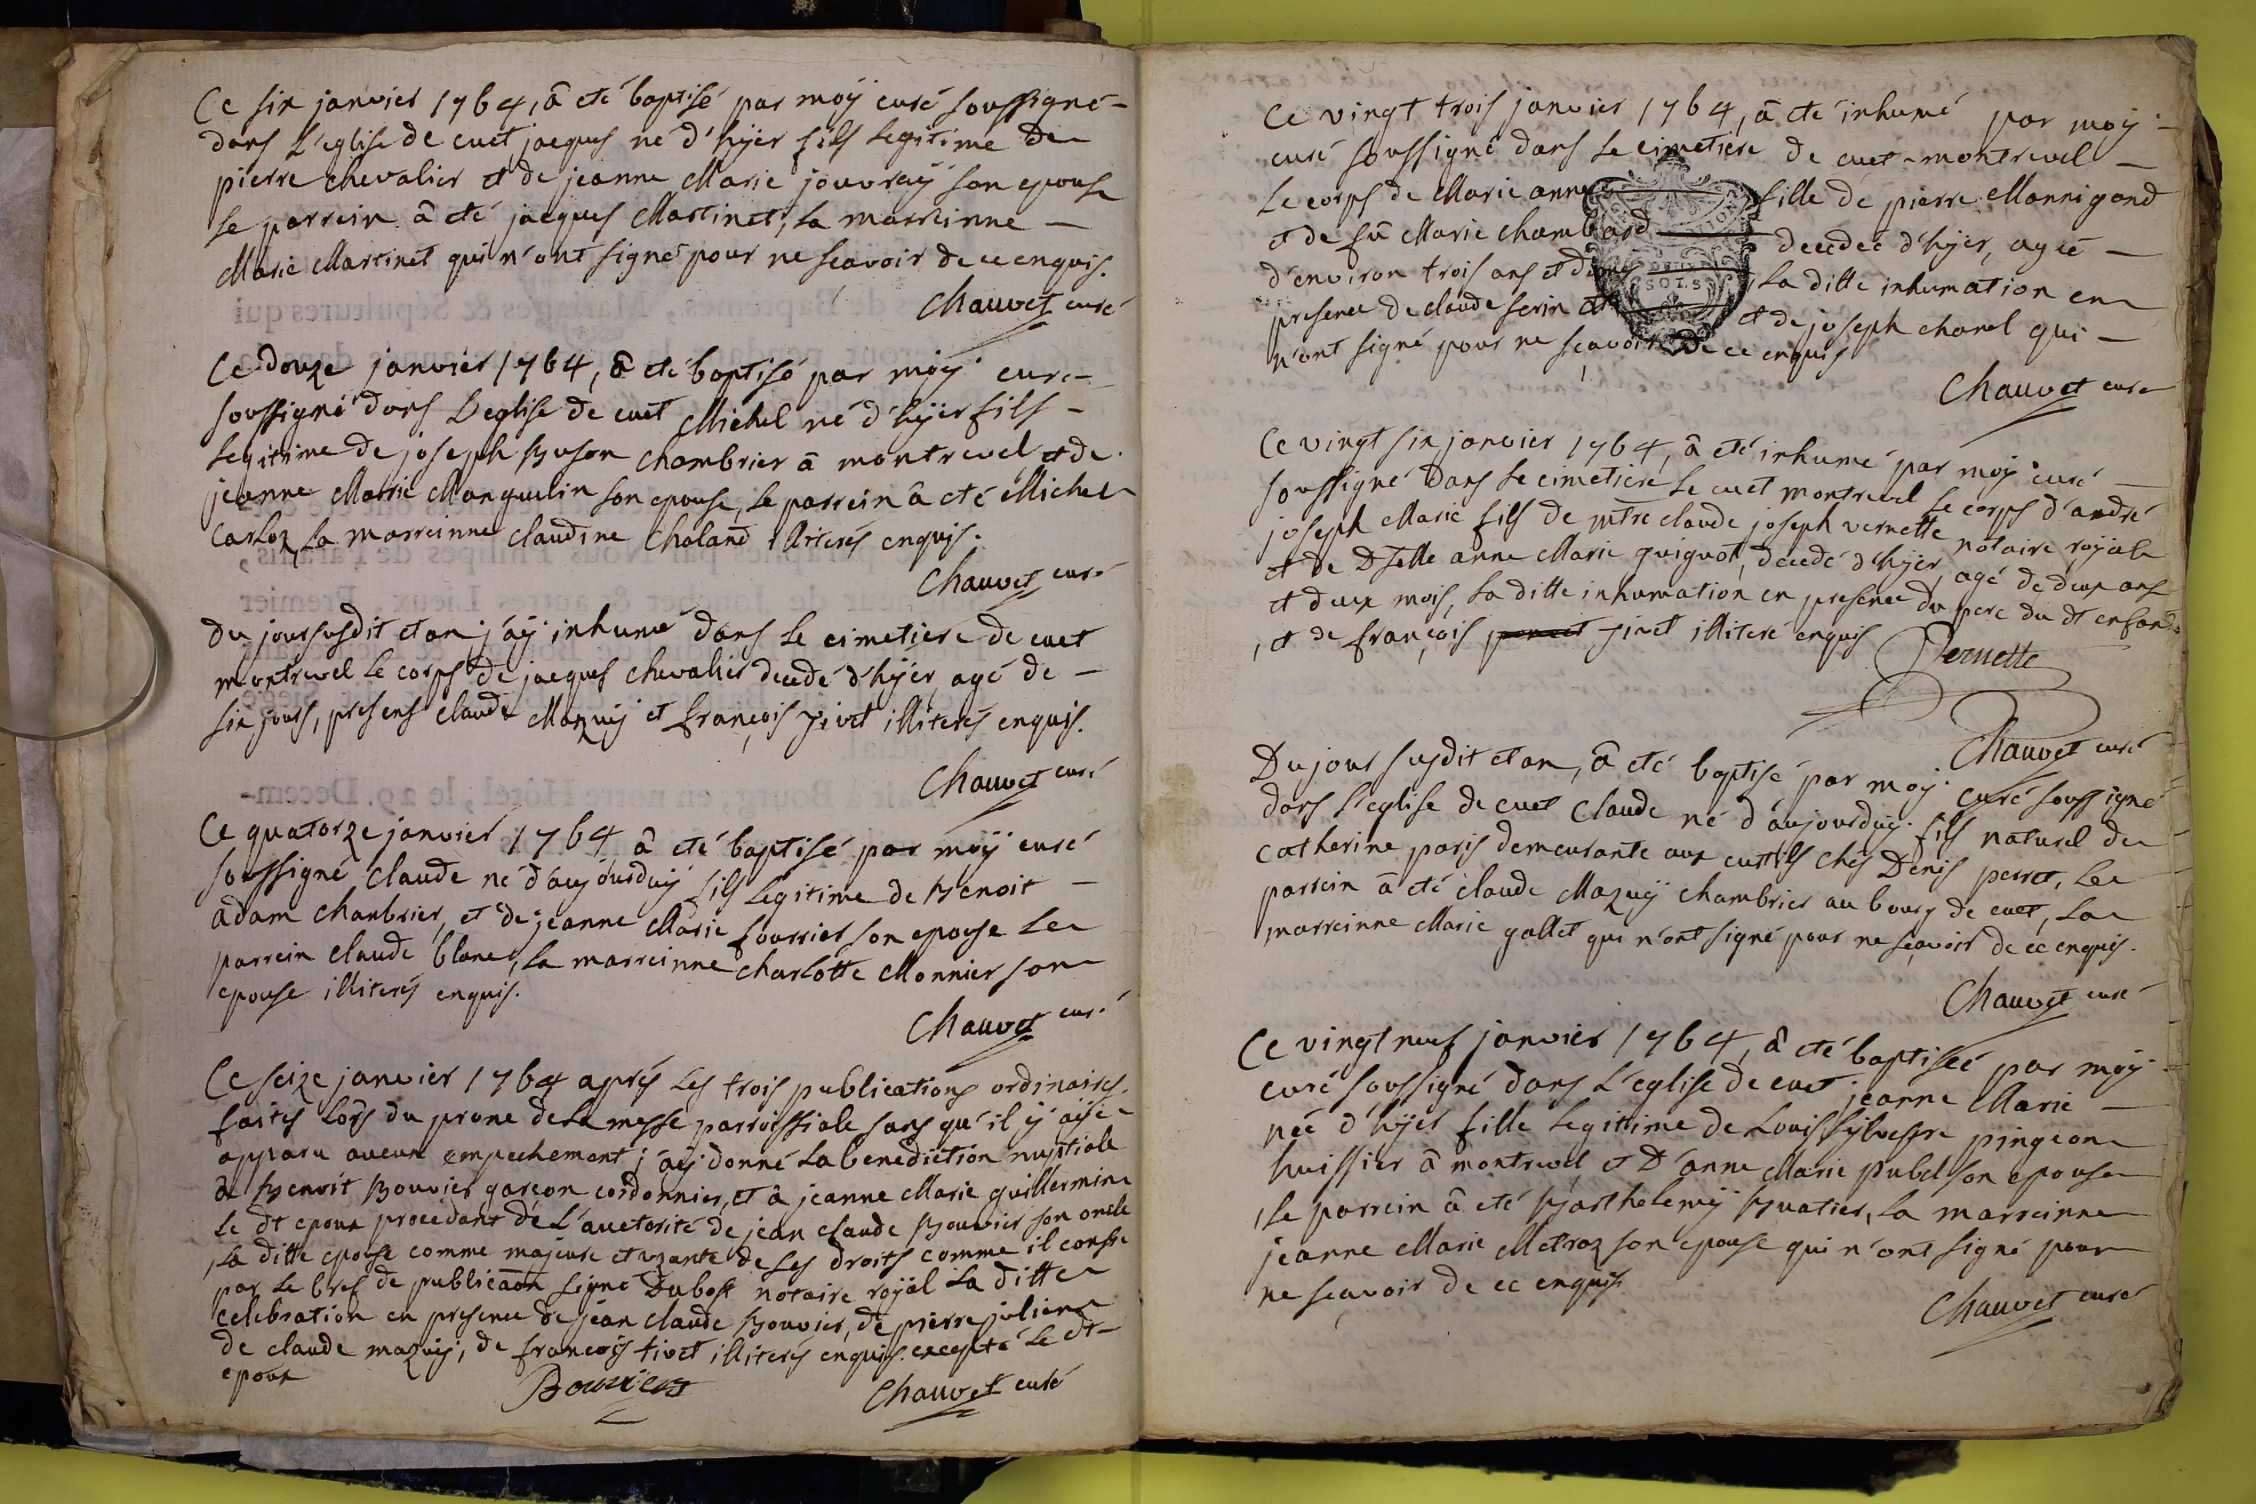 Ce six janvier 1764, â eté baptisé par moÿ curé soussigné
dans L'eglise de cuet, jacques né d'hÿer fils Legitime de
pierre chevalier et de jeanne Marie jouvraÿ son epouse
Le parrein â eté jacques Martinet, La marreinne
Marie Martinet qui n'ont signé pour ne sçavoir de ce enquis.
Chauvet curé
Ce douze janvier 1764, â eté baptisé par moÿ curé
soussigné dans L'eglise de cuet Michel né d'hÿer fils
Legitime de joseph Buson chambrier â montrevel, et de
jeanne Marie Manguelin son epouse, Le parrein â eté Michel
Carloz, La marreinne claudine Chaland illiterés enquis.
Chauvet curé
du jour susdit et an, j'aÿ inhumé dans Le cimetiere de cuet
montrevel Le corps de jacques chevalier decedé d'hÿer, agé de
six jours, presens claude Mazuÿ et françois Tivet illiterés enquis.
Chauvet curé
Ce quatorze janvier 1764, â eté baptisé par moÿ curé
soussigné claude né d'aujourduÿ fils Legitime de Benoit
adam chambrier, et de jeanne Marie fourrier son epouse Le
parrein claude blanc, La marreinne charlotte Monnier son
epouse illiterés enquis.
Chauvet curé
Ce seize janvier 1764 aprés Les trois publications ordinaires,
faites Lors du prone de La messe parroissiale sans qu'il ÿ aÿe
apparu aucun empechement j'aÿ donné La benediction nuptiale
â Benoit Bouvier garçon cordonnier, et â jeanne Marie guillermin
Le dt epoux procedant de L'auctorité de jean claude Bouvier son oncle
, La ditte epouse comme majeure et uzante de ses droits comme il conste
par Le bref de publicaôn signé Dubost notaire roÿal La ditte
celebration en presence de jean claude Bouvier, de pierre julien
de claude mazuÿ, de françois tivet illiterés enquis. excepté Le dt
epoux
Bouvier
Chauvet curé
Ce vingt trois janvier 1764, â eté inhumé par moÿ
curé soussigné dans Le cimetiere de cuet-montrevel
Le corps de Marie anne fille de pierre Mannigand
et de fû Marie chambard decedeé d'hÿer, ageé
d'environ trois ans et demy, La ditte inhumation en
SOLS
presence de claude serin et de joseph chanel qui
n'ont signé pour ne sçavoir de ce enquis
Chauvet curé
Ce vingt six janvier 1764, â eté inhumé par moÿ curé
soussigné dans Le cimetiere Le cuet montrevel Le corps d'andré
joseph Marie fils de mtre claude joseph vernette notaire roÿale
et de Dselle anne Marie guiguot, decedé d'hÿer, agé de deux ans
et deux mois, La ditte inhumation en presence du pere du dt enfant
, et de françois tivet illiteré enquis
Vernette
Chauvet curé
Du jour susdit et an, â eté baptisé par moÿ curé soussigné
dans L'eglise de cuet claude né d'aujourduÿ fils naturel de
catherine paris demeurante aux cutils chés Denis perret, Le
parrein â eté claude Mazuÿ chambrier au bourg de cuet, La
marreinne Marie gallet qui n'ont signé pour ne sçavoir de ce enquis.
Chauvet curé
Ce vingt neuf janvier 1764, â eté baptiseé par moÿ
curé soussigné dans L'eglise de cuet jeanne Marie
neé d'hÿer fille Legitime de Louis sylvestre pingeon
huissier â montrevel et D'anne Marie pubel son epouse
, Le parrein â eté Barthelemÿ Buatier, La marreinne
jeanne Marie Metraz son epouse qui n'ont signé pour
ne sçavoir de ce enquis
Chauvet curé